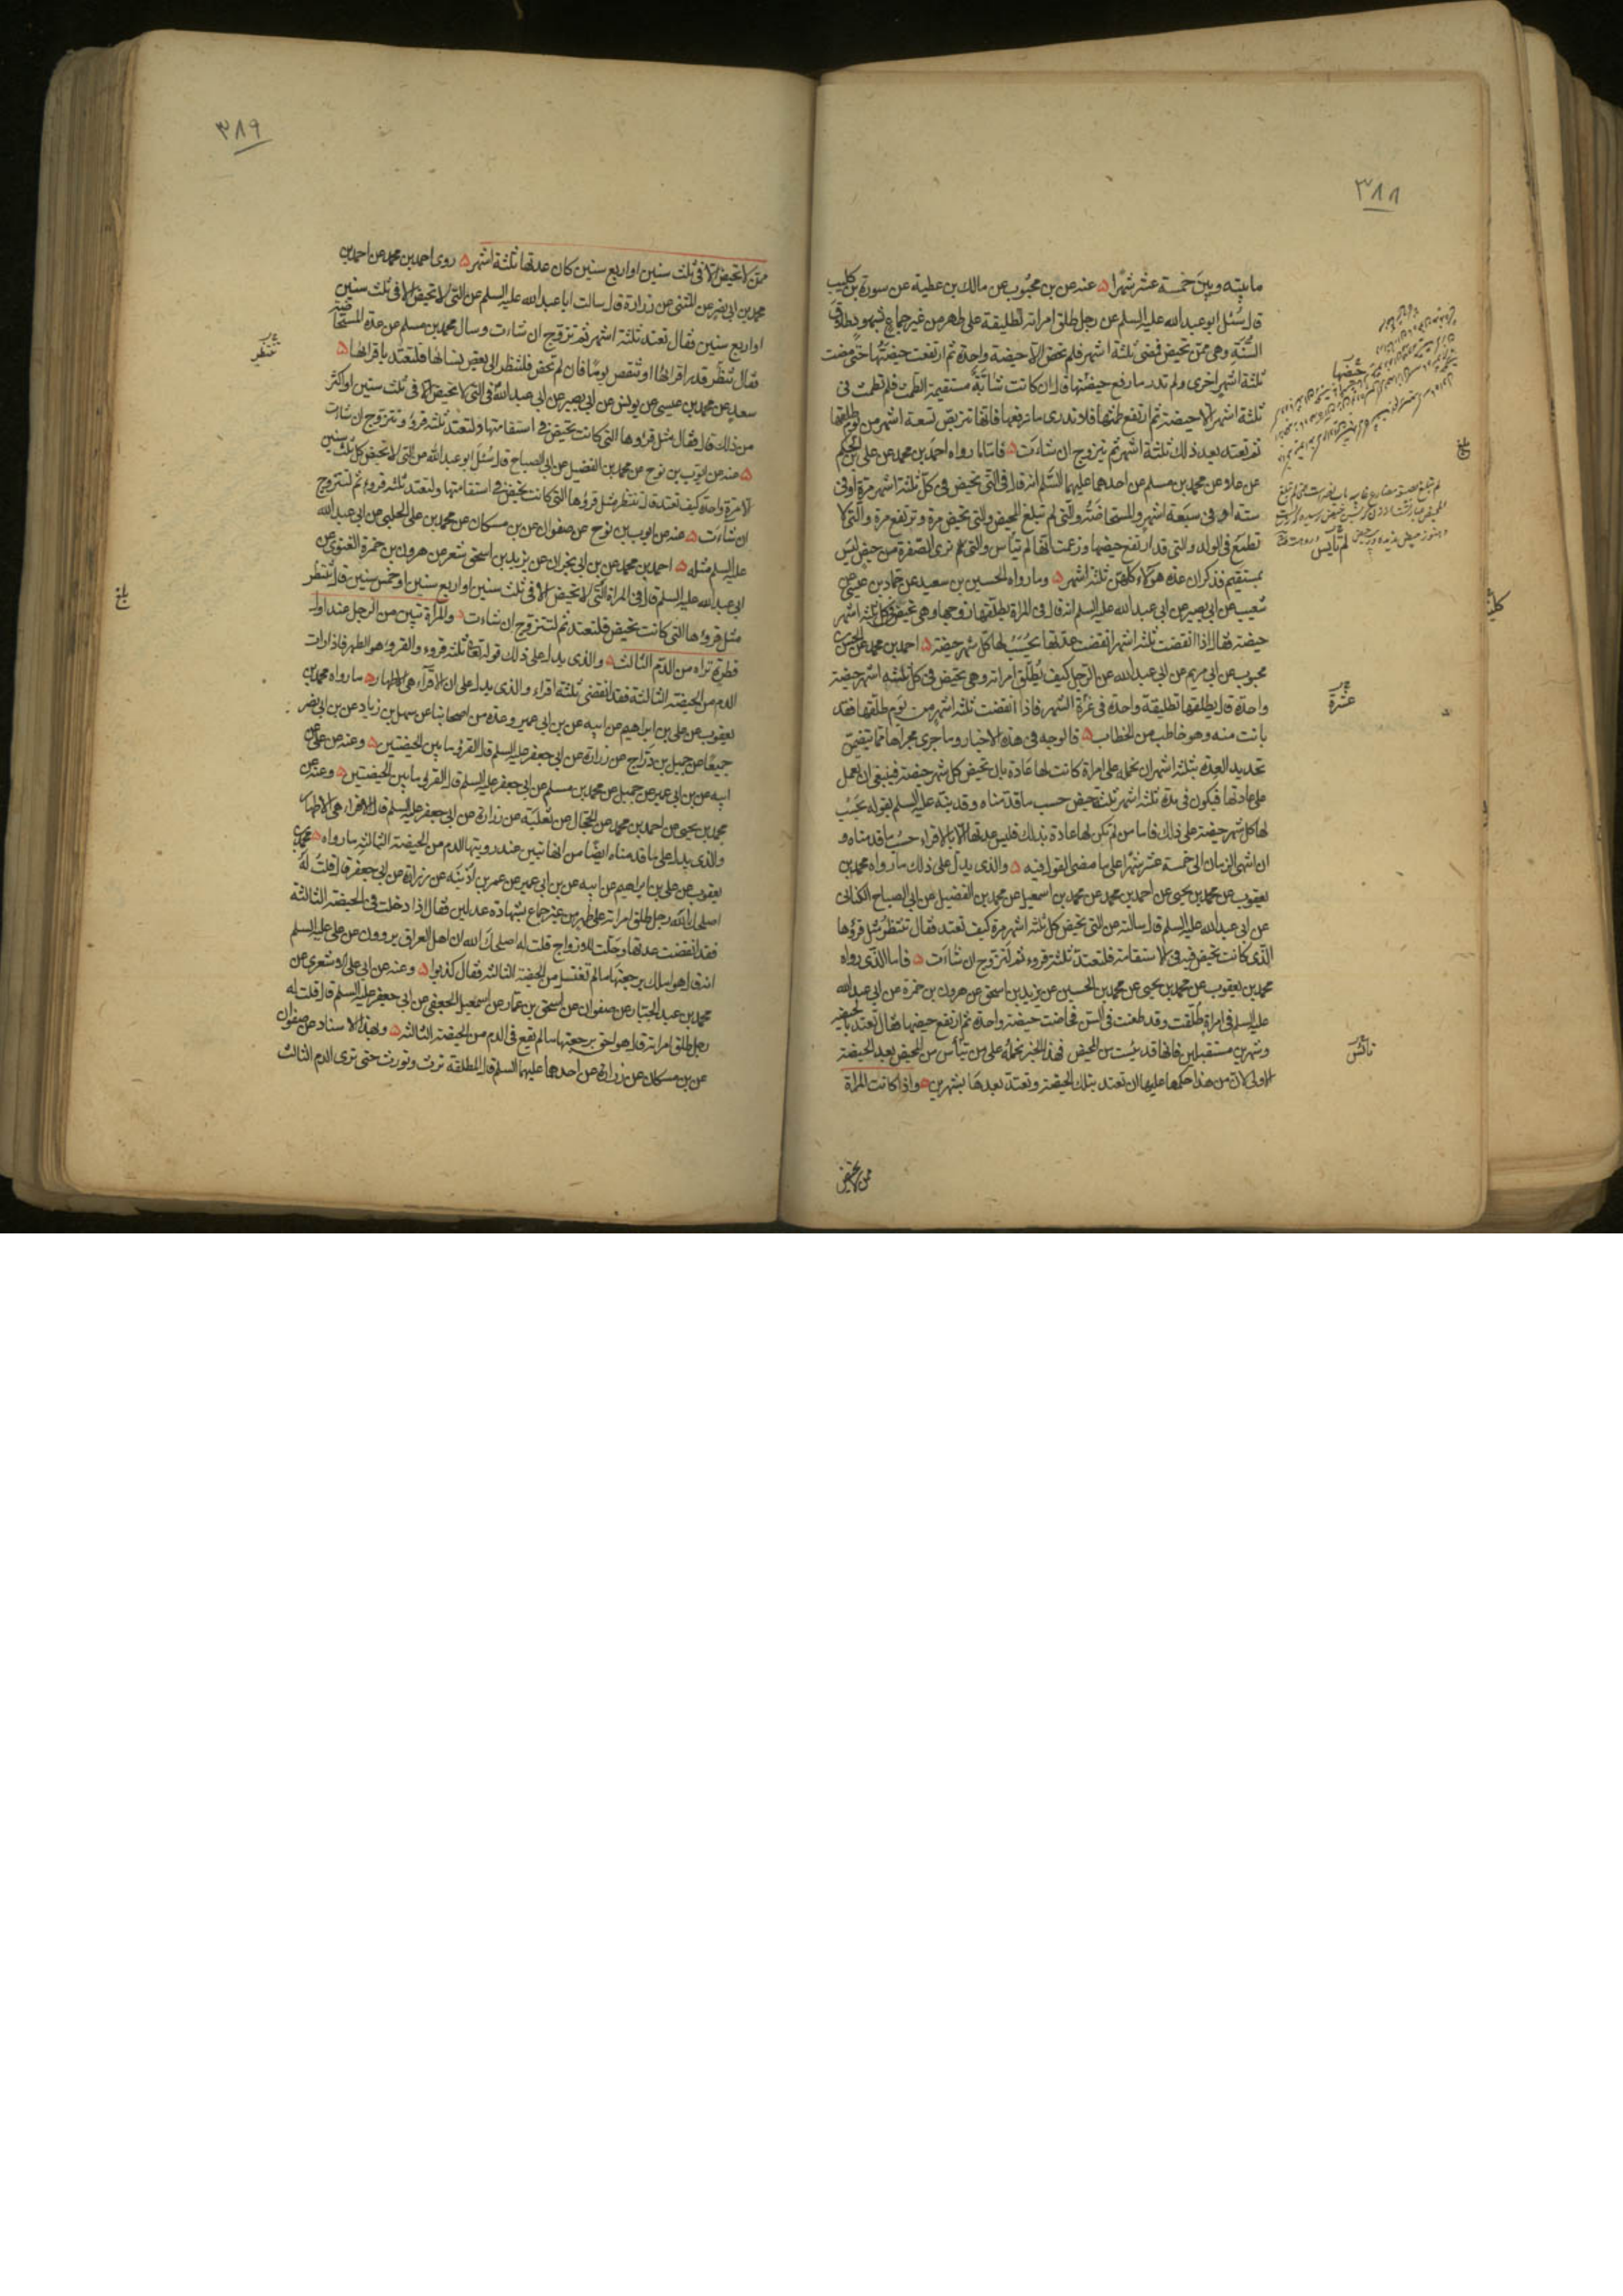 ٣٨٨
ما بينه وبين خمسة عشر شهرا ه عنه عن بن محبوب عن مالك بن عطية عن سورة بن كليب
قال سُئل ابو عبدالله عليه السلم عن رجل طلق امراته تطليقة على طهر من غير جماع بشهود طلاق
السُّنّة وهى ممّن تحيض فمضى ثلثة اشهر فلم تحض الا حيضة واحدة ثم ارتفعت حيضتها حتى مضت
ثلثة اشهر اخرى ولم تدر ما رفع حيضتها قال ان كانت شابّةً مستقيمة الطمث فلم تطمث فى
ثلثة اشهر الا حيضة ثم ارتفع طمثها فلا تدرى ما رفعها فانها تتربص تسعة اشهر من يوم طلقها
ثم تعتد بعد ذلك ثلثة اشهر ثم تتزوج ان شاءت ه فاما ما رواه احمد بن محمد عن على بن الحكم
عن علاء عن محمد بن مسلم عن احدهما عليهما السلم انه قال فى التى تحيض فى كل ثلثة اشهر مرة او فى
ستة او فى سبعة اشهر والمستحاضة والتى لم تبلغ المحيض والتى تحيض مرة وترتفع مرة والتى لا
تطمع فى الولد والتى قد ارتفع حيضها وزعمت انها لم تيأس والتى ترى الصفرة من حيض ليس
بمستقيم فذكر ان عدة هؤلاء كلهن ثلثة اشهر ه وما رواه الحسين بن سعيد عن حماد بن عيسى عن
شعيب عن ابى بصير عن ابى عبدالله عليه السلم انه قال فى المراة يطلقها زوجها وهى تحيض فى كل ثلثة اشهر
حيضة فقال اذا انقضت ثلثة اشهر انقضت عدتها يُحسَبُ لها كل شهر حيضة ه احمد بن محمد عن الحسن بن
محبوب عن ابى مريم عن ابى عبدالله عن الرجل كيف يُطلّق امراته وهى تحيض فى كل ثلثة اشهر حيضة
واحدة قال يطلقها تطليقة واحدة فى غُرّة الشهر فاذا انقضت ثلثة اشهر من يوم طلقها فقد
بانت منه وهو خاطب من الخطاب ه فالوجه فى هذه الاخبار وما جرى مجراها مما يتضمن
تحديد العدة بثلثة اشهر ان نحمله على امراة كانت لها عادة بان تحيض كل شهر حيضة فينبغى ان تعمل
على عادتها فيكون فى مدة ثلثة اشهر ثلث حيض حسب ما قدمناه وقد بيّنه عليه السلم بقوله يحسب
لها كل شهر حيضة على ذلك فاما من لم تكن لها عادة بذلك فليس عدتها الا بالاقراء حسب ما قدمناه و
ان انتهى الزمان الى خمسة عشر شهرا على ما مضى القول فيه ه والذى يدل على ذلك ما رواه محمد بن
يعقوب عن محمد بن يحيى عن احمد بن محمد عن محمد بن اسمعيل عن محمد بن الفضيل عن ابى الصباح الكنانى
عن ابى عبدالله عليه السلم قال سالته عن التى تحيض كل ثلثة اشهر مرة كيف تعتد فقال تنتظر مثل قرؤها
الذى كانت تحيض فيه فى الاستقامة فلتعتد ثلثة قروء ثم لتزوج ان شاءت ه فاما الذى رواه
محمد بن يعقوب عن محمد بن يحيى عن محمد بن الحسين عن يزيد بن اسحق عن هرون بن حمزة عن ابى عبدالله
عليه السلم فى امراة طُلّقت وقد طعنت فى السن فحاضت حيضة واحدة ثم ارتفع حيضها فقال تعتد بالحيضة
وشهرين مستقبلين فانها قد يئست من المحيض فهذا الخبر نحمله على من تيأس من المحيض بعد الحيضة
الاولى لان من هذا حكمها عليها ان تعتد بتلك الحيضة وتعتد بعدها بشهرين ه واذا كانت المراة
ممن لا تحيض
حيضها
بلغ
لم تأيس
عشرة
تأئس
٣٨٩
ممن لا تحيض الا فى ثلث سنين او اربع سنين كان عدتها ثلثة اشهر ه روى احمد بن محمد عن احمد بن
محمد بن ابى نصر عن المثنى عن زرارة قال سالت ابا عبدالله عليه السلم عن التى لا تحيض الا فى ثلث سنين
او اربع سنين فقال تعتد ثلثة اشهر ثم تزوج ان شاءت وسال محمد بن مسلم عن عدة المستحاضة
فقال تنظر قدر اقرائها او تنقص يومًا فان لم تحض فلتنظر الى بعض نسائها فلتعتد باقرائها ه
سعد عن محمد بن عيسى عن يونس عن ابى بصير عن ابى عبدالله فى التى لا تحيض الا فى ثلث سنين او اكثر
من ذلك قال فقال مثل قروها التى كانت تحيض فى استقامتها ولتعتد ثلثة قروء وتتزوج ان شاءت
ه عنه عن ايوب بن نوح عن محمد بن الفضيل عن ابى الصباح قال سُئل ابو عبدالله عن التى لا تحيض كل ثلث سنين
الا مرة واحدة كيف تعتد قال تنتظر مثل قرؤها التى كانت تحيض فى استقامتها ولتعتد ثلثة قروء ثم لتتزوج
ان شاءت ه عنه عن ايوب بن نوح عن صفوان عن بن مسكان عن محمد بن على الحلبى عن ابى عبدالله
عليه السلم مثله ه احمد بن محمد عن بن ابى نجران عن يزيد بن اسحق شعر عن هرون بن حمزة الغنوى عن
ابى عبدالله عليه السلم قال فى المراة التى لا تحيض الا فى ثلث سنين او اربع سنين او خمس سنين قال تنتظر
مثل قروءها التى كانت تحيض فلتعتد ثم لتتزوج ان شاءت ه والمراة تبين من الرجل عند اول
قطرة تراه من الدم الثالث ه والذى يدل على ذلك قوله تعالى ثلثة قروء والقروء هو الطهر فاذا رات
الدم من الحيضة الثالثة فقد انقضى ثلثة اقراء والذى يدل على ان الاقراء هى الاطهار ه ما رواه محمد بن
يعقوب عن على بن ابراهيم عن ابيه عن بن ابى عمير وعدة من اصحابنا عن سهل بن زياد عن بن ابى نصر
جميعًا عن جميل بن دراج عن زرارة عن ابى جعفر عليه السلم قال القرؤ ما بين الحيضتين ه وعنه عن على عن
ابيه عن بن ابى عمير عن جميل عن محمد بن مسلم عن ابى جعفر عليه السلم قال القرؤ ما بين الحيضتين ه وعنه عن
محمد بن يحيى عن احمد بن محمد عن الحجال عن ثعلبة عن زرارة عن ابى جعفر عليه السلم قال الاقراء هى الاطهار
والذى يدل على ما قدمناه ايضًا من انها تبين عند رويتها الدم من الحيضة الثالثة ما رواه ه محمد بن
يعقوب عن على بن ابراهيم عن ابيه عن بن ابى عمير عن عمر بن اُذينة عن زرارة عن ابى جعفر قال قلتُ له
اصلحك الله رجل طلق امراته على طهر من غير جماع بشهادة عدلين فقال اذا دخلت فى الحيضة الثالثة
فقد انقضت عدتها وحلّت للازواج قلت له اصلحك الله ان اهل العراق يروون عن على عليه السلم
انه قال هو املك برجعتها ما لم تغتسل من الحيضة الثالثة فقال كذبوا ه وعنه عن ابى على الاشعرى عن
محمد بن عبد الجبار عن صفوان عن اسحق بن عمار عن اسمعيل الجعفى عن ابى جعفر عليه السلم قال قلت له
رجل طلق امراته قال هو احق برجعتها ما لم تقع فى الدم من الحيضة الثالثة ه وبهذا الاسناد عن صفوان
عن بن مسكان عن زرارة عن احدهما عليهما السلم قال المطلقة ترث وتورث حتى ترى الدم الثالث
تنظر
بلغ